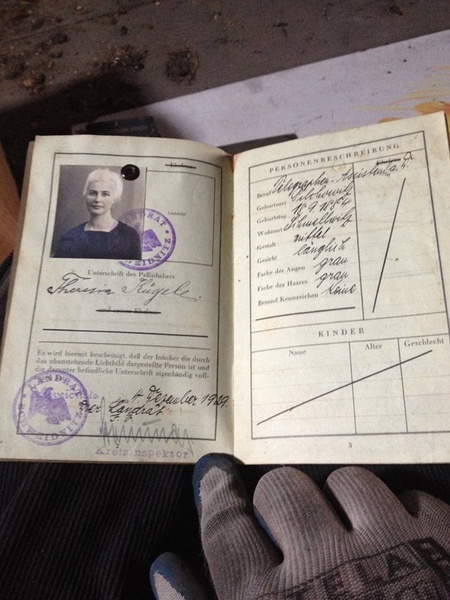 Ehefrau
Lichtbild
Unterschrift des Paßinhabers
Theresia Kügel
Es wird hiermit bescheinigt, daß der Inhaber die durch
das obenstehende Lichtbild dargestellte Person ist und
die darunter befindliche Unterschrift eigenhändig voll-
Dezember 1939
Der Landrat
Kreisinspektor
LANDRAT
LEIBNITZ
LANDRAT
LEIBNITZ
PERSONENBESCHREIBUNG
Ehefrau
Beruf Telegraphen-Assistentin
Geburtsort
Geburtstag
Wohnort
Gestalt mittel
Gesicht länglich
Farbe der Augen grau
Farbe des Haares grau
Besond. Kennzeichen Keine
KINDER
Name Alter Geschlecht
3